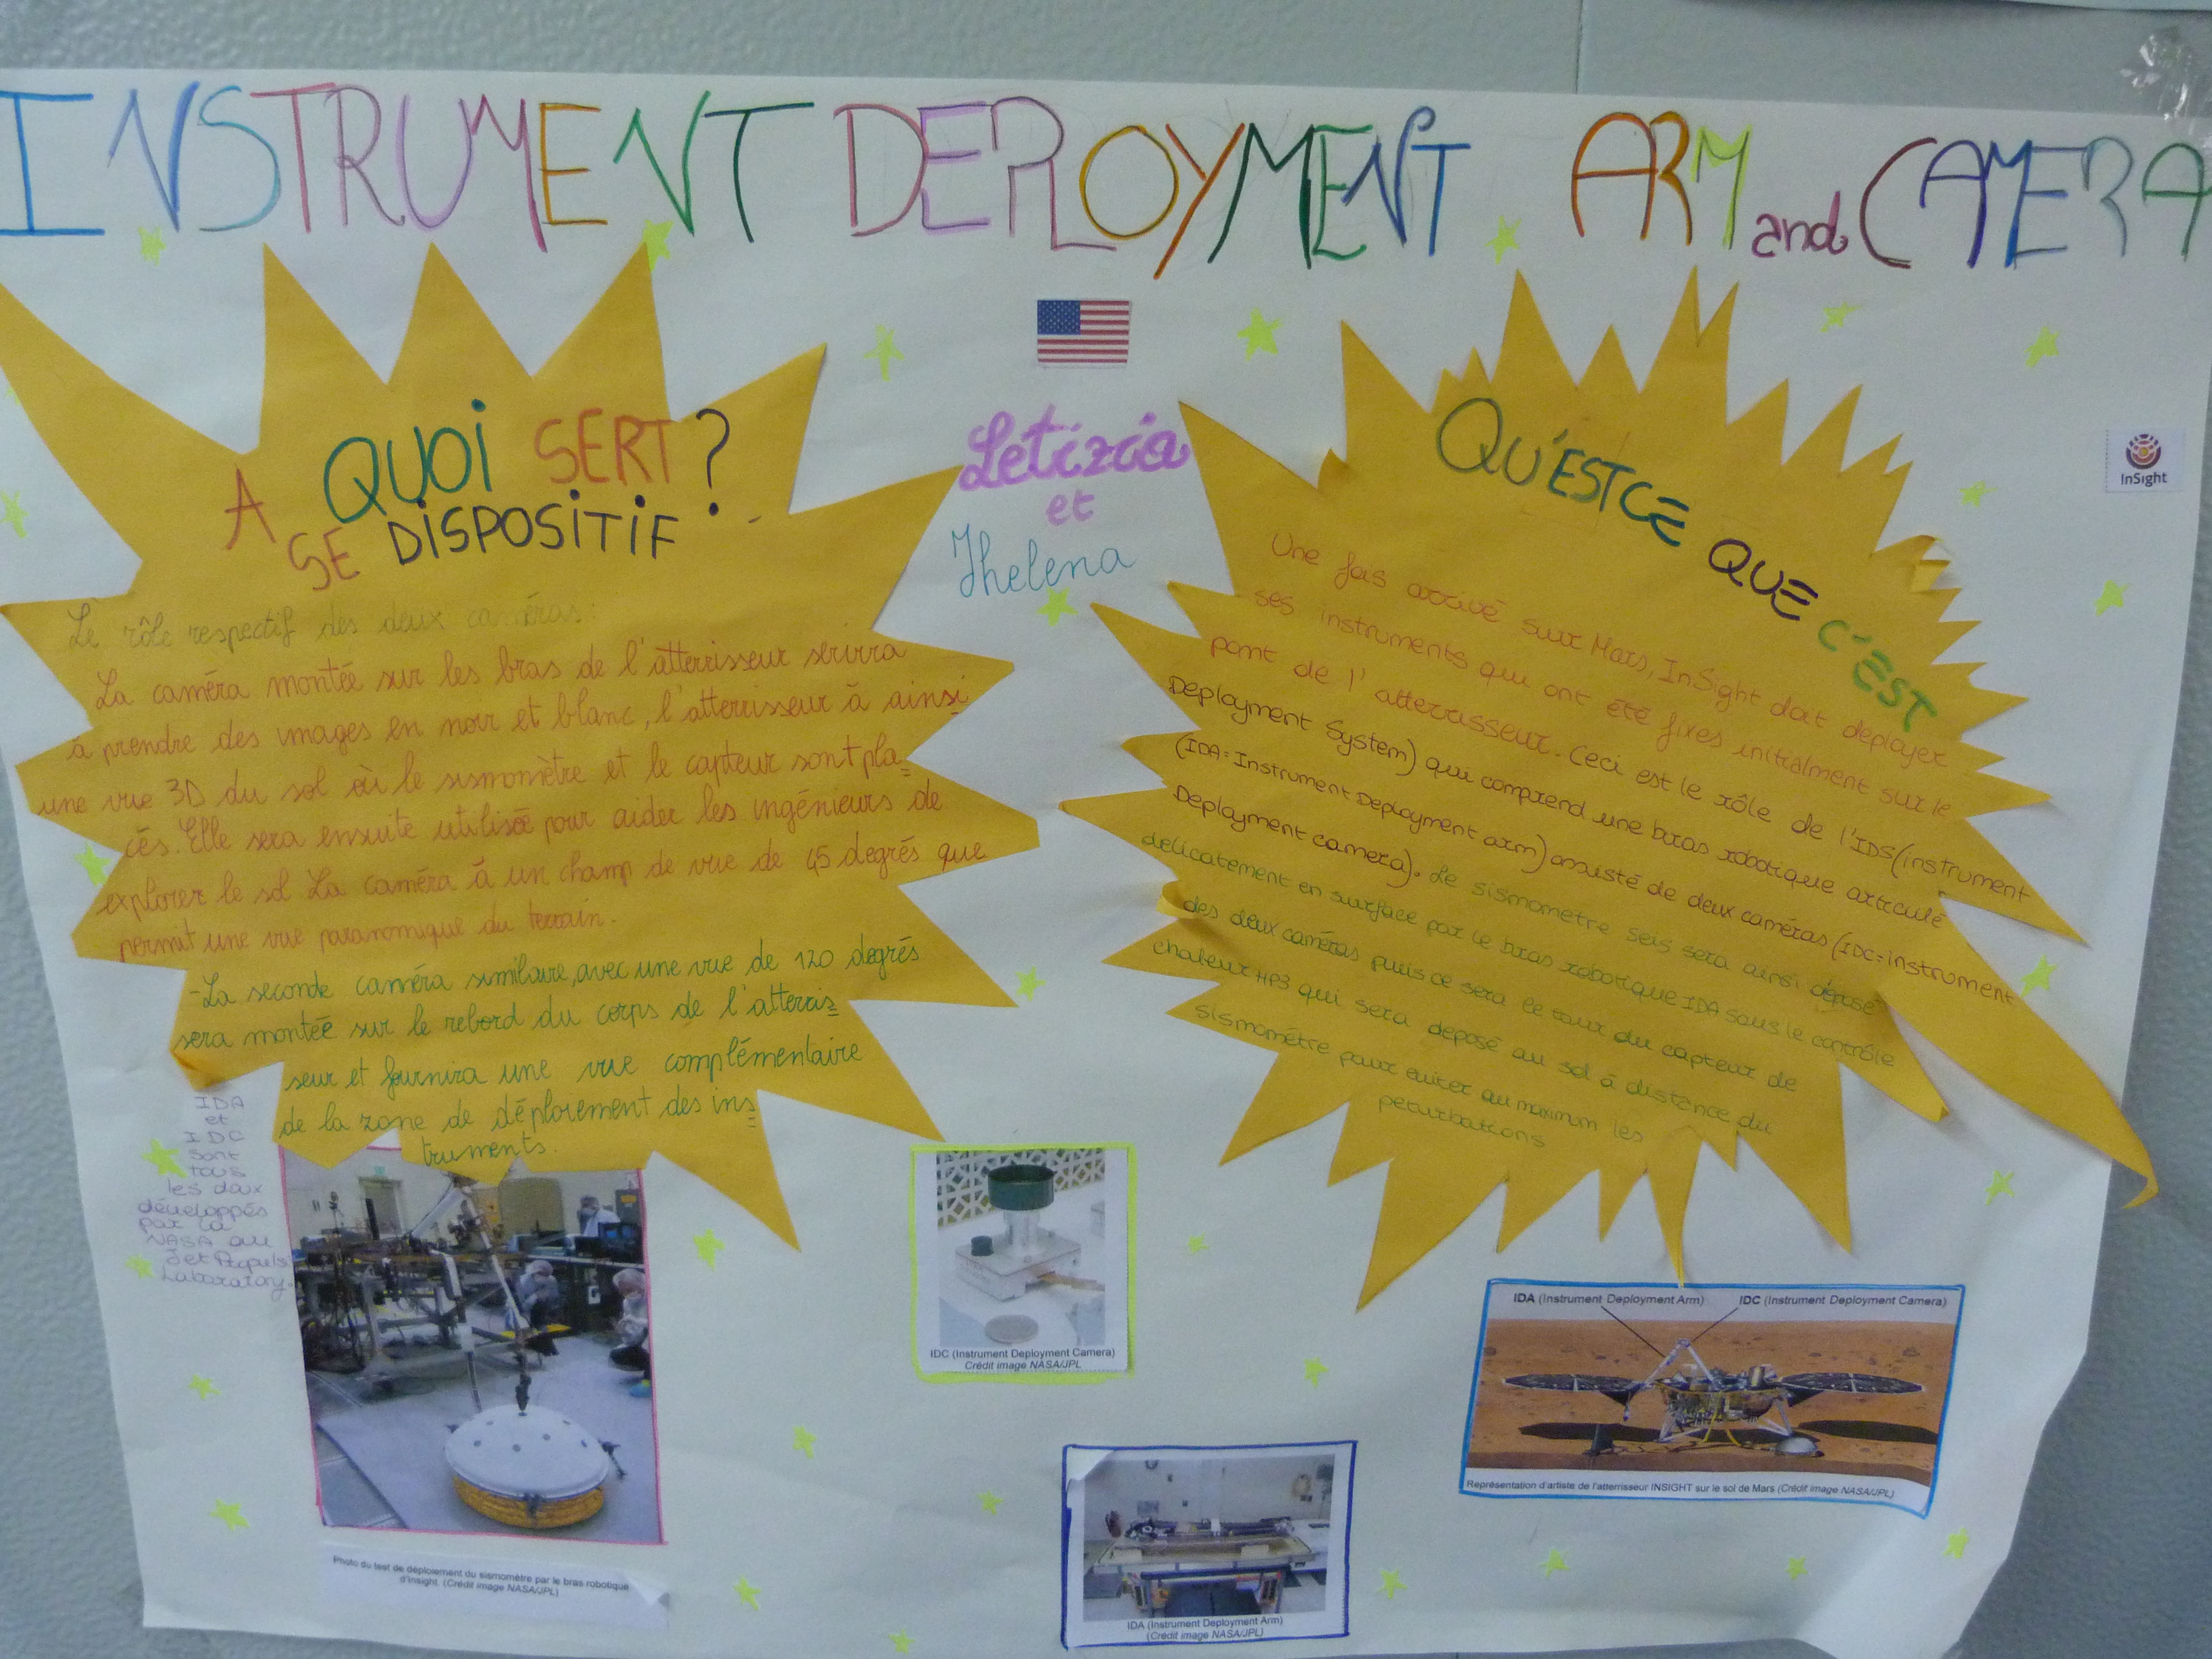 INSTRUMENT DEPLOYMENT ARM and CAMERA
A QUOI SERT ?
SE DISPOSITIF
Le rôle respectif des deux caméras:
La caméra montée sur les bras de l'atterrisseur servira
à prendre des images en noir et blanc, l'atterrisseur à ainsi
une vue 3D du sol où le sismomètre et le capteur sont pla_
cés. Elle sera ensuite utilisée pour aider les ingénieurs de
explorer le sol La caméra à un champ de vue de 45 degrés que
permit une vue paranomique du terrain.
-La seconde caméra similaire, avec une vue de 120 degrés
sera montée sur le rebord du corps de l'atterris=
seur et fournira une vue complémentaire
de la zone de déploiement des ins=
truments.
Letizia
et
Jhelena
InSight
QU'EST CE QUE C'EST
Une fois arrivé sur Mars, InSight doit deployer
ses instruments qui ont été fixés initialment sur le
pont de l'atterrisseur. Ceci est le rôle de l'IDS (instrument
Deployment System) qui comprend une bras robotique articulé
(IDA=Instrument Deployment arm) assisté de deux caméras (IDC=instrument
Deployment camera). Le sismomètre seis sera ainsi déposé
delicatement en surface par le bras robotique IDA sous le contrôle
des deux caméras puis ce sera le tour du capteur de
chaleur HP3 qui sera déposé au sol à distance du
sismomètre pour eviter au maximum les
peturbations
IDA
et
IDC
sont
tous
les deux
développés
par la
NASA au
Jet Propuls
Laboratory.
Photo du test de déploiement du sismomètre par le bras robotique
d'Insight (Crédit image NASA/JPL)
IDC (Instrument Deployment Camera)
Crédit image NASA/JPL
IDA (Instrument Deployment Arm)
(Crédit image NASA/JPL)
IDA (Instrument Deployment Arm) IDC (Instrument Deployment Camera)
Représentation d'artiste de l'atterrisseur INSIGHT sur le sol de Mars (Crédit image NASA/JPL)